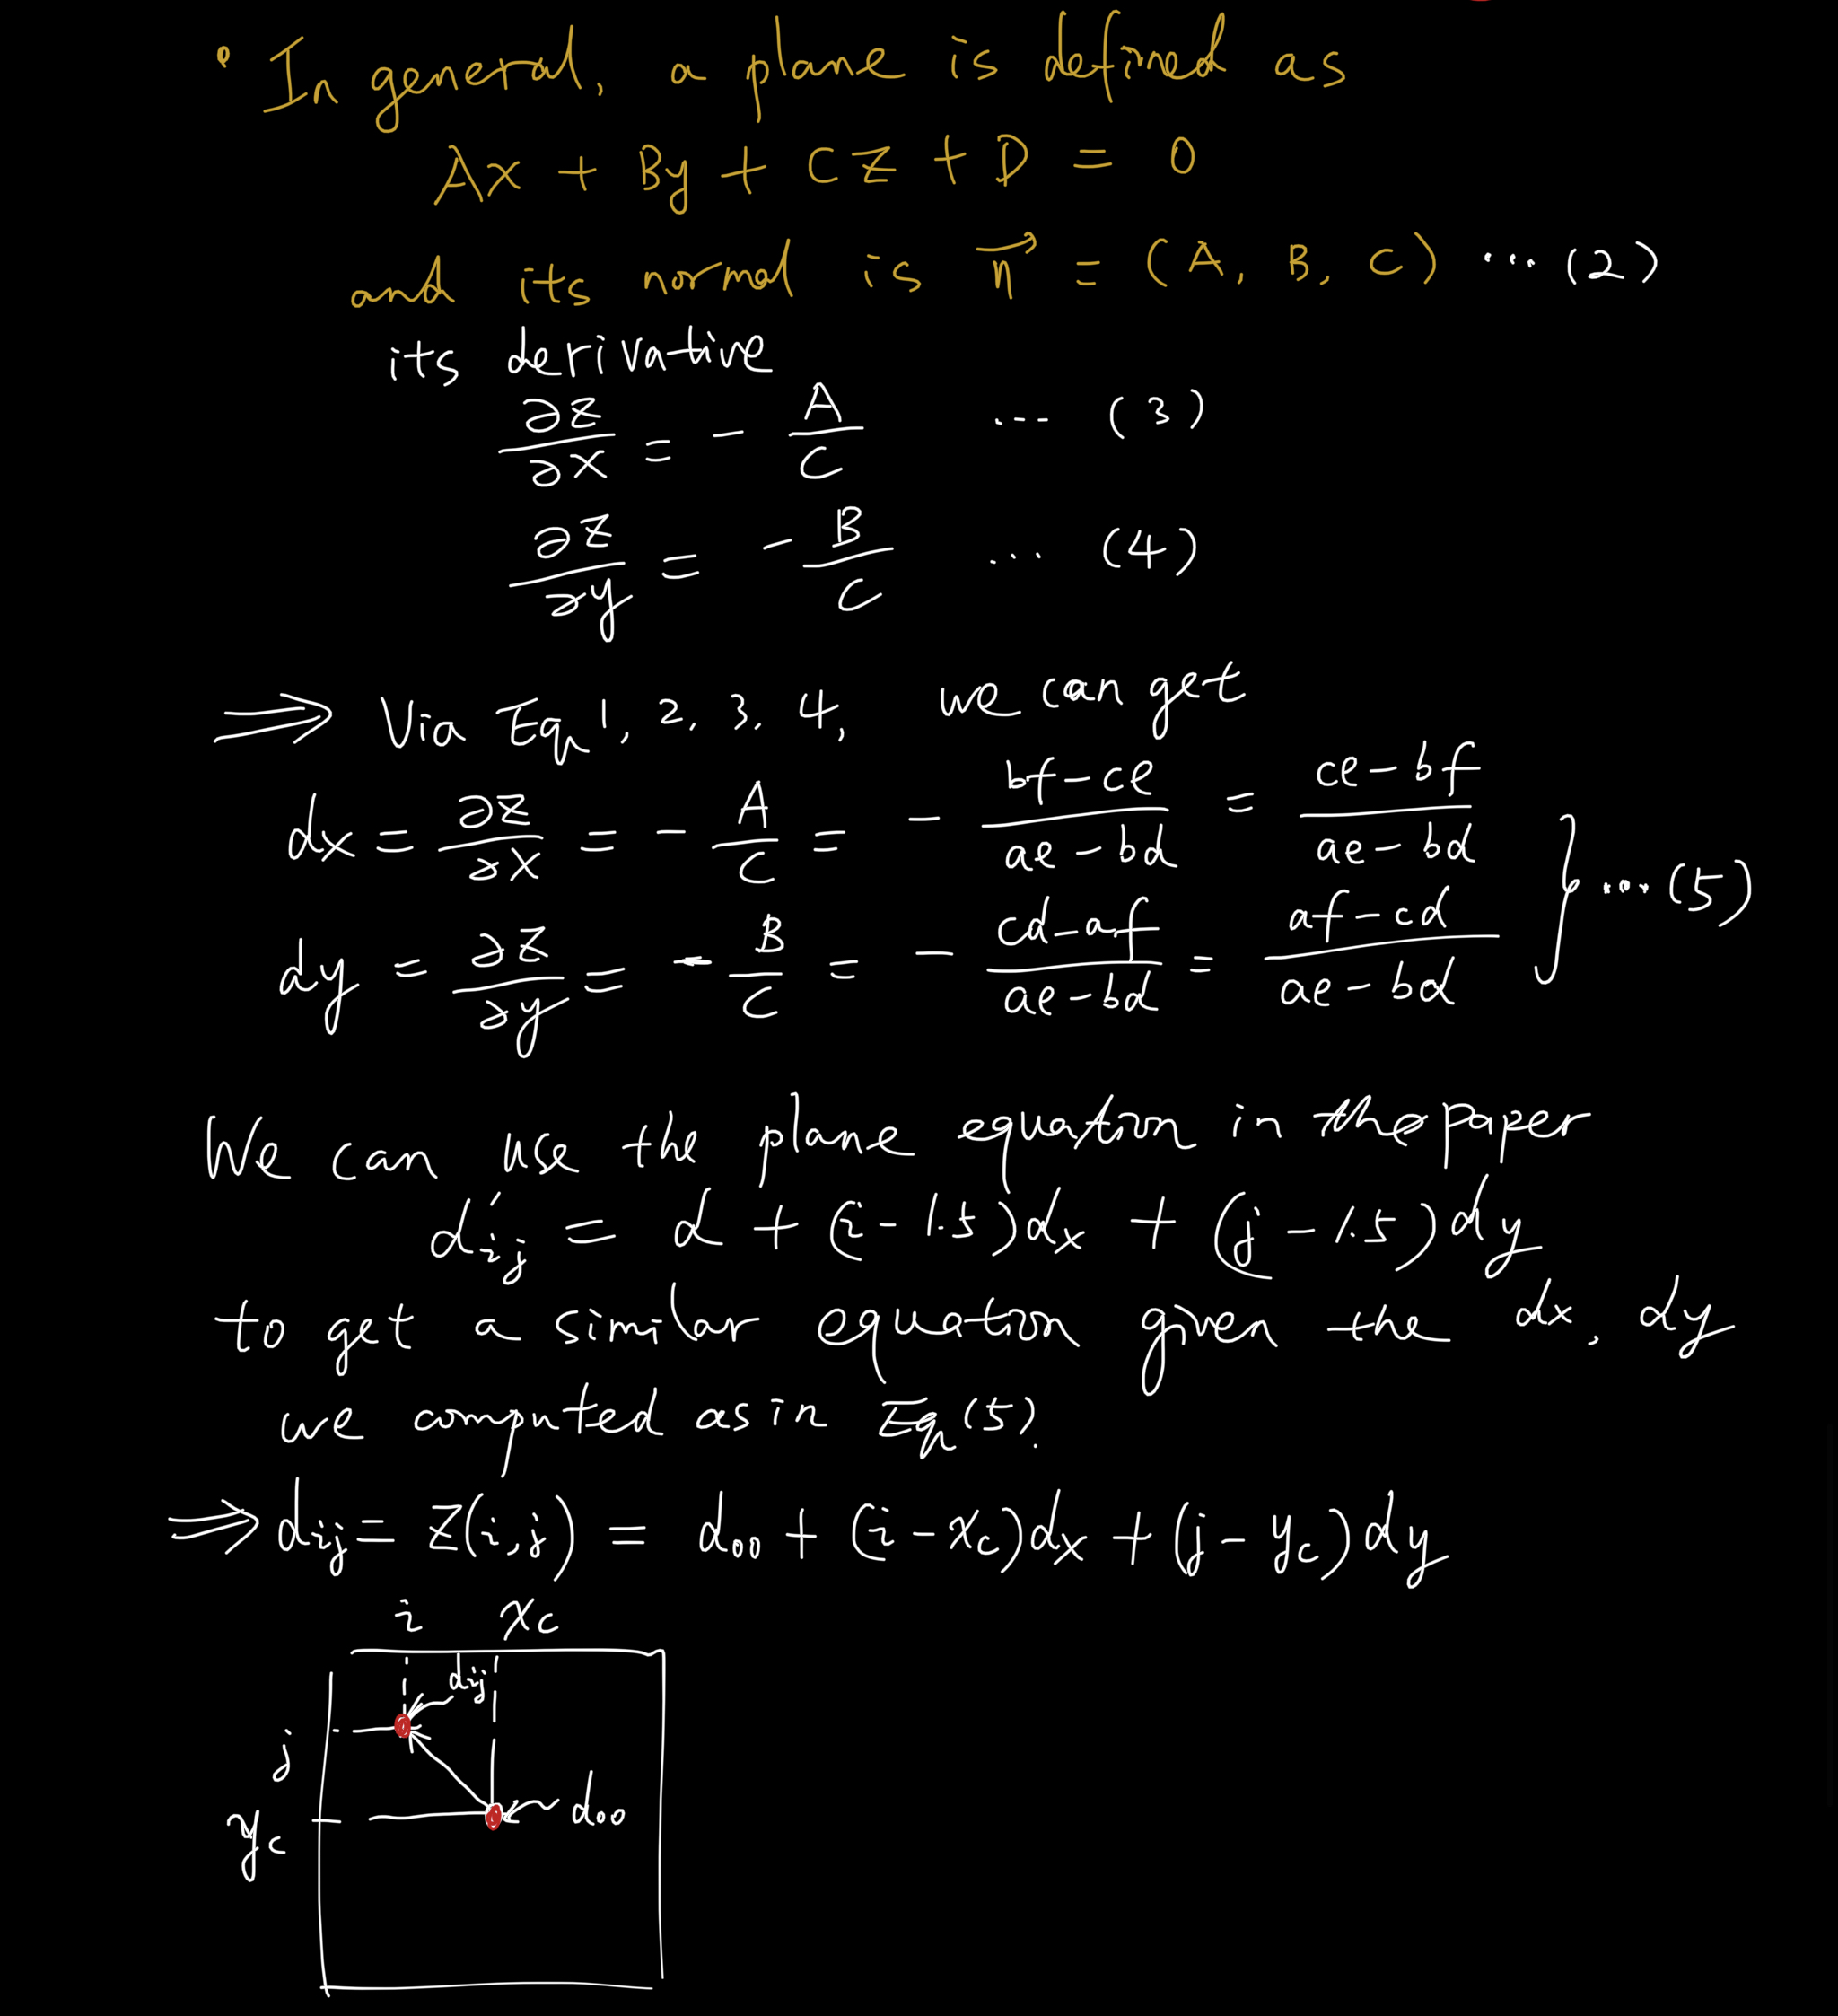 • In general, a plane is defined as
Ax + By + CZ + D = 0
and its normal is n⃗ = (A, B, C) ... (2)
its derivative
∂Z/∂X = - A/C ... (3)
∂Z/∂y = - B/C ... (4)
⇒ Via Eq 1, 2, 3, 4, we can get
dx = ∂Z/∂X = - A/C = - (bf - ce)/(ae - bd) = (ce - bf)/(ae - bd)
dy = ∂Z/∂y = - B/C = - (cd - af)/(ae - bd) = (af - cd)/(ae - bd) } ... (5)
We can use the plane equation in the paper
d'ij = d + (i - 1.5)dx + (j - 1.5)dy
to get a similar equation given the dx, dy
we computed as in Eq(5).
⇒ dij = Z(i,j) = d00 + (i - xc)dx + (j - yc)dy
i xc
dij
j
yc d00